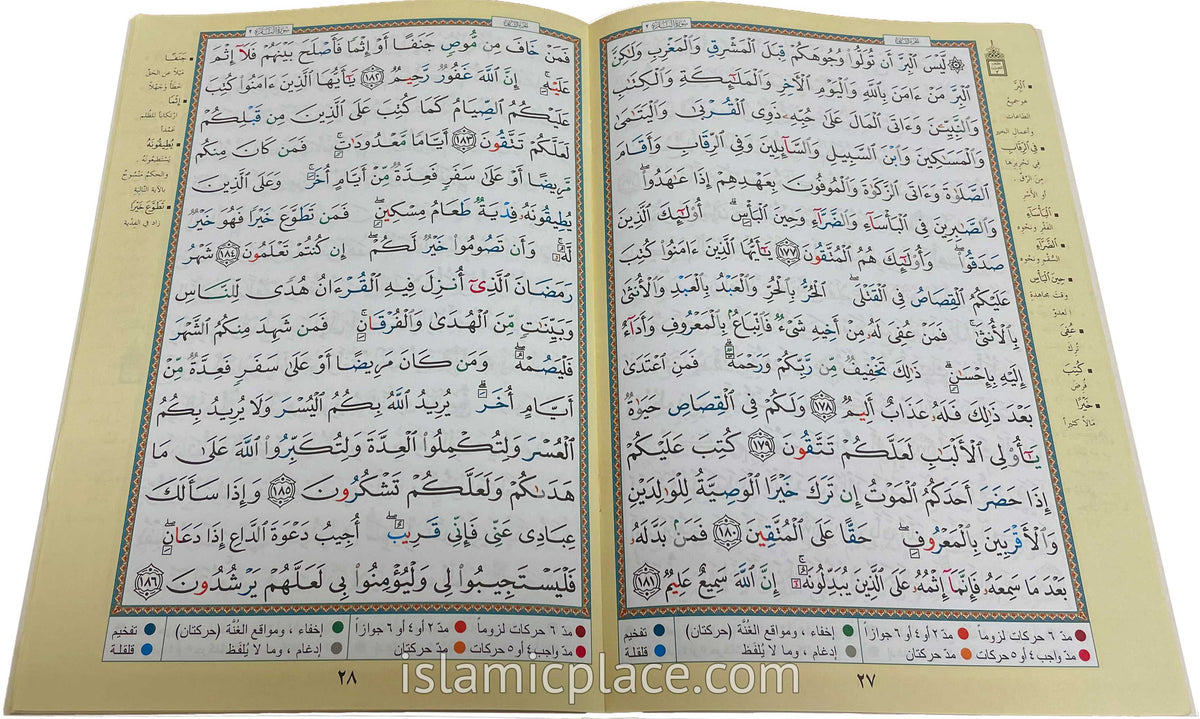 لَّيْسَ ٱلْبِرَّ أَن تُوَلُّوا۟ وُجُوهَكُمْ قِبَلَ ٱلْمَشْرِقِ وَٱلْمَغْرِبِ وَلَٰكِنَّ
ٱلْبِرَّ مَنْ ءَامَنَ بِٱللَّهِ وَٱلْيَوْمِ ٱلْءَاخِرِ وَٱلْمَلَٰٓئِكَةِ وَٱلْكِتَٰبِ
وَٱلنَّبِيِّۦنَ وَءَاتَى ٱلْمَالَ عَلَىٰ حُبِّهِۦ ذَوِى ٱلْقُرْبَىٰ وَٱلْيَتَٰمَىٰ
وَٱلْمَسَٰكِينَ وَٱبْنَ ٱلسَّبِيلِ وَٱلسَّآئِلِينَ وَفِى ٱلرِّقَابِ وَأَقَامَ
ٱلصَّلَوٰةَ وَءَاتَى ٱلزَّكَوٰةَ وَٱلْمُوفُونَ بِعَهْدِهِمْ إِذَا عَٰهَدُوا۟ ۖ
وَٱلصَّٰبِرِينَ فِى ٱلْبَأْسَآءِ وَٱلضَّرَّآءِ وَحِينَ ٱلْبَأْسِ ۗ أُو۟لَٰٓئِكَ ٱلَّذِينَ
صَدَقُوا۟ ۖ وَأُو۟لَٰٓئِكَ هُمُ ٱلْمُتَّقُونَ ١٧٧ يَٰٓأَيُّهَا ٱلَّذِينَ ءَامَنُوا۟ كُتِبَ
عَلَيْكُمُ ٱلْقِصَاصُ فِى ٱلْقَتْلَى ۖ ٱلْحُرُّ بِٱلْحُرِّ وَٱلْعَبْدُ بِٱلْعَبْدِ وَٱلْأُنثَىٰ
بِٱلْأُنثَىٰ ۚ فَمَنْ عُفِىَ لَهُۥ مِنْ أَخِيهِ شَىْءٌ فَٱتِّبَاعٌۢ بِٱلْمَعْرُوفِ وَأَدَآءٌ
إِلَيْهِ بِإِحْسَٰنٍ ۗ ذَٰلِكَ تَخْفِيفٌ مِّن رَّبِّكُمْ وَرَحْمَةٌ ۗ فَمَنِ ٱعْتَدَىٰ
بَعْدَ ذَٰلِكَ فَلَهُۥ عَذَابٌ أَلِيمٌ ١٧٨ وَلَكُمْ فِى ٱلْقِصَاصِ حَيَوٰةٌ
يَٰٓأُو۟لِى ٱلْأَلْبَٰبِ لَعَلَّكُمْ تَتَّقُونَ ١٧٩ كُتِبَ عَلَيْكُمْ
إِذَا حَضَرَ أَحَدَكُمُ ٱلْمَوْتُ إِن تَرَكَ خَيْرًا ٱلْوَصِيَّةُ لِلْوَٰلِدَيْنِ
وَٱلْأَقْرَبِينَ بِٱلْمَعْرُوفِ ۖ حَقًّا عَلَى ٱلْمُتَّقِينَ ١٨٠ فَمَنۢ بَدَّلَهُۥ
بَعْدَ مَا سَمِعَهُۥ فَإِنَّمَآ إِثْمُهُۥ عَلَى ٱلَّذِينَ يُبَدِّلُونَهُۥٓ ۚ إِنَّ ٱللَّهَ سَمِيعٌ عَلِيمٌ ١٨١
البِرَّ
هو جميعُ
الطاعات
وأعمال الخير
في الرِّقاب
في تحريرها
من الرِّقِّ
أو الأسْرِ
البأساء
الفقر ونحوه
الضراء
السُّقم ونحوه
حين البأس
وقت مجاهدة
العدوّ
عُفِيَ
تُرِكَ
كُتِبَ
فُرِضَ
خَيْرًا
مالاً كثيراً
مدّ ٦ حركات لزوماً مدّ ٢ أو ٤ أو ٦ جوازاً إخفاء ، ومواقع الغُنَّة (حركتان) تفخيم
مدّ واجب ٤ أو ٥ حركات مدّ حركتان إدغام ، وما لا يُلفَظ قلقلة
٢٧
سورة البقرة ٢
فَمَنْ خَافَ مِن مُّوصٍ جَنَفًا أَوْ إِثْمًا فَأَصْلَحَ بَيْنَهُمْ فَلَآ إِثْمَ
عَلَيْهِ ۚ إِنَّ ٱللَّهَ غَفُورٌ رَّحِيمٌ ١٨٢ يَٰٓأَيُّهَا ٱلَّذِينَ ءَامَنُوا۟ كُتِبَ
عَلَيْكُمُ ٱلصِّيَامُ كَمَا كُتِبَ عَلَى ٱلَّذِينَ مِن قَبْلِكُمْ
لَعَلَّكُمْ تَتَّقُونَ ١٨٣ أَيَّامًا مَّعْدُودَٰتٍ ۚ فَمَن كَانَ مِنكُم
مَّرِيضًا أَوْ عَلَىٰ سَفَرٍ فَعِدَّةٌ مِّنْ أَيَّامٍ أُخَرَ ۚ وَعَلَى ٱلَّذِينَ
يُطِيقُونَهُۥ فِدْيَةٌ طَعَامُ مِسْكِينٍ ۖ فَمَن تَطَوَّعَ خَيْرًا فَهُوَ خَيْرٌ
لَّهُۥ ۚ وَأَن تَصُومُوا۟ خَيْرٌ لَّكُمْ ۖ إِن كُنتُمْ تَعْلَمُونَ ١٨٤ شَهْرُ
رَمَضَانَ ٱلَّذِىٓ أُنزِلَ فِيهِ ٱلْقُرْءَانُ هُدًى لِّلنَّاسِ
وَبَيِّنَٰتٍ مِّنَ ٱلْهُدَىٰ وَٱلْفُرْقَانِ ۚ فَمَن شَهِدَ مِنكُمُ ٱلشَّهْرَ
فَلْيَصُمْهُ ۖ وَمَن كَانَ مَرِيضًا أَوْ عَلَىٰ سَفَرٍ فَعِدَّةٌ مِّنْ
أَيَّامٍ أُخَرَ ۗ يُرِيدُ ٱللَّهُ بِكُمُ ٱلْيُسْرَ وَلَا يُرِيدُ بِكُمُ
ٱلْعُسْرَ وَلِتُكْمِلُوا۟ ٱلْعِدَّةَ وَلِتُكَبِّرُوا۟ ٱللَّهَ عَلَىٰ مَا
هَدَىٰكُمْ وَلَعَلَّكُمْ تَشْكُرُونَ ١٨٥ وَإِذَا سَأَلَكَ
عِبَادِى عَنِّى فَإِنِّى قَرِيبٌ ۖ أُجِيبُ دَعْوَةَ ٱلدَّاعِ إِذَا دَعَانِ ۖ
فَلْيَسْتَجِيبُوا۟ لِى وَلْيُؤْمِنُوا۟ بِى لَعَلَّهُمْ يَرْشُدُونَ ١٨٦
جَنَفًا
ميلاً عن الحقّ
خطأً وجهلاً
إثمًا
ارتكاباً للظلم
عمداً
يُطيقونه
يستطيعونه .
والحكم منسوخ
بالآية التالية
تطوّع خيرًا
زاد في الفدية
مدّ ٦ حركات لزوماً مدّ ٢ أو ٤ أو ٦ جوازاً إخفاء ، ومواقع الغُنَّة (حركتان) تفخيم
مدّ واجب ٤ أو ٥ حركات مدّ حركتان إدغام ، وما لا يُلفَظ قلقلة
٢٨
islamicplace.com